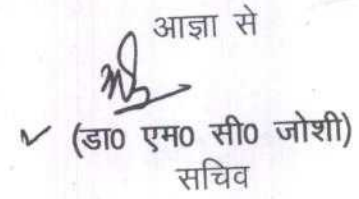 आज्ञा से
(डा0 एम0 सी0 जोशी)
सचिव